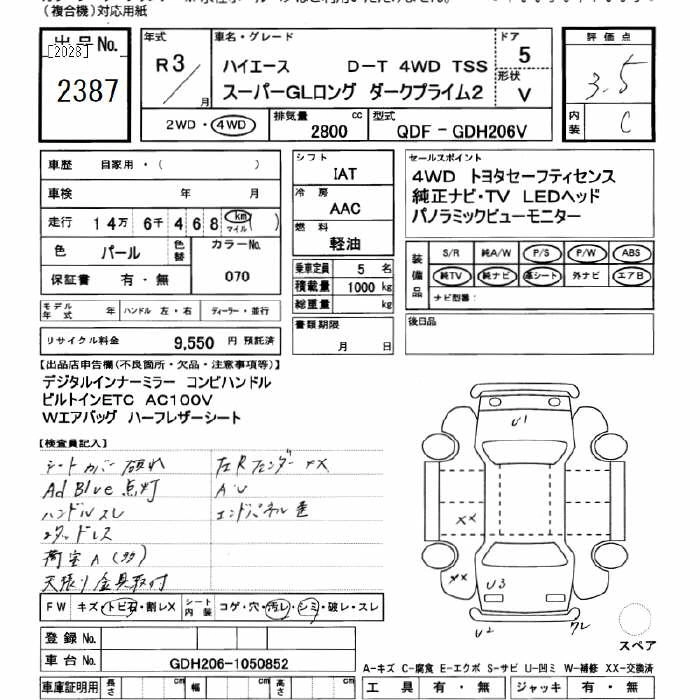 (複合機)対応用紙
出品No.
[2028]
2387
年式
R3/
月
車名・グレード
ハイエース D-T 4WD TSS
スーパーGLロング ダークプライム2
ドア
5
形状
V
2WD・4WD
排気量
2800
cc
型式
QDF - GDH206V
評価点
3.5
内装
C
車歴 自家用・( )
車検 年 月
走行 14万 6千 468 km マイル( )
色 パール
色替
カラーNo.
070
保証書 有・無
モデル年式 年 ハンドル 左・右 ディーラー・並行
リサイクル料金 9,550 円 預託済
シフト
IAT
冷房
AAC
燃料
軽油
乗車定員 5 名
積載量 1000 kg
総重量 kg
書類期限
月 日
セールスポイント
4WD トヨタセーフティセンス
純正ナビ・TV LEDヘッド
パノラミックビューモニター
装備品
S/R 純A/W P/S P/W ABS
純TV 純ナビ 革シート 外ナビ エアB
ナビ型番:
後日品
【出品店申告欄(不良箇所・欠品・注意事項等)】
デジタルインナーミラー コンビハンドル
ビルトインETC AC100V
Wエアバッグ ハーフレザーシート
【検査員記入】
シートカバー破れ
Ad Blue点灯
ハンドルスレ
スタッドレス
荷室A(多)
天張り金具取付
左Rフェンダーxx
AU
エンドパネル歪
U1
xx
xx
U3
U2
ワレ
スペア
FW キズ・トビ石・割レX シート内装 コゲ・穴・汚レ・シミ・破レ・スレ
登録No.
車台No. GDH206-1050852
車庫証明用 長さ cm 幅 cm 高さ cm
A-キズ C-腐食 E-エクボ S-サビ U-凹ミ W-補修 XX-交換済
工具 有・無 ジャッキ 有・無